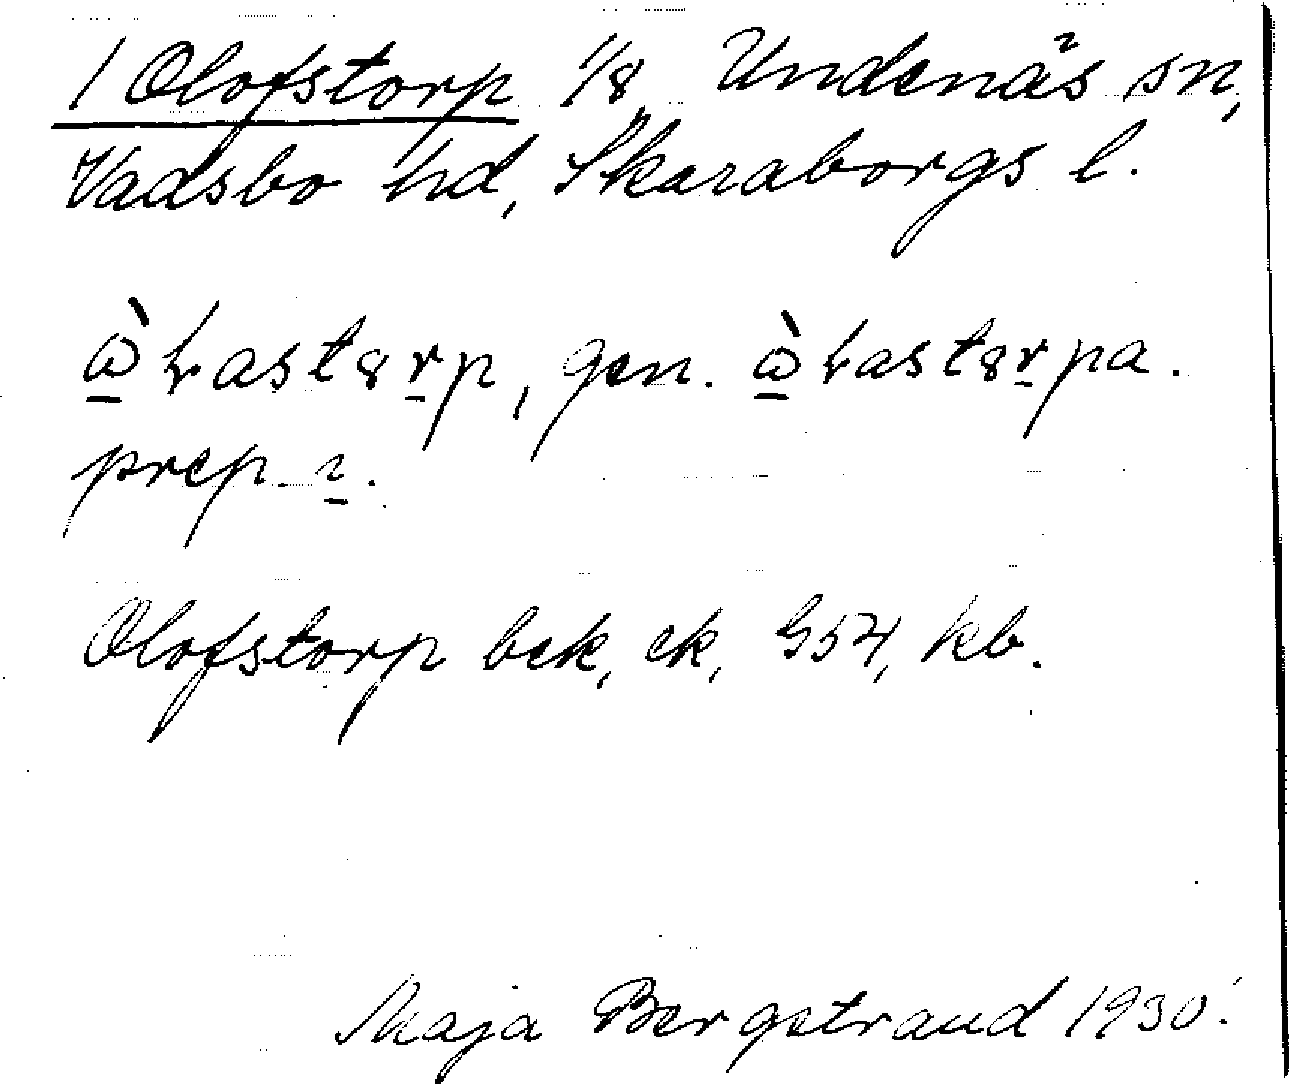 1 Olofstorp 1/8, Undenäs sn,
Vadsbo hd, Skaraborgs l.
ὼƚastɞrp, gen. ὼƚastɞrpa.
prep. ɪ.
Olofstorp bek, ek, G54, kb.
Maja Bergstrand 1930.